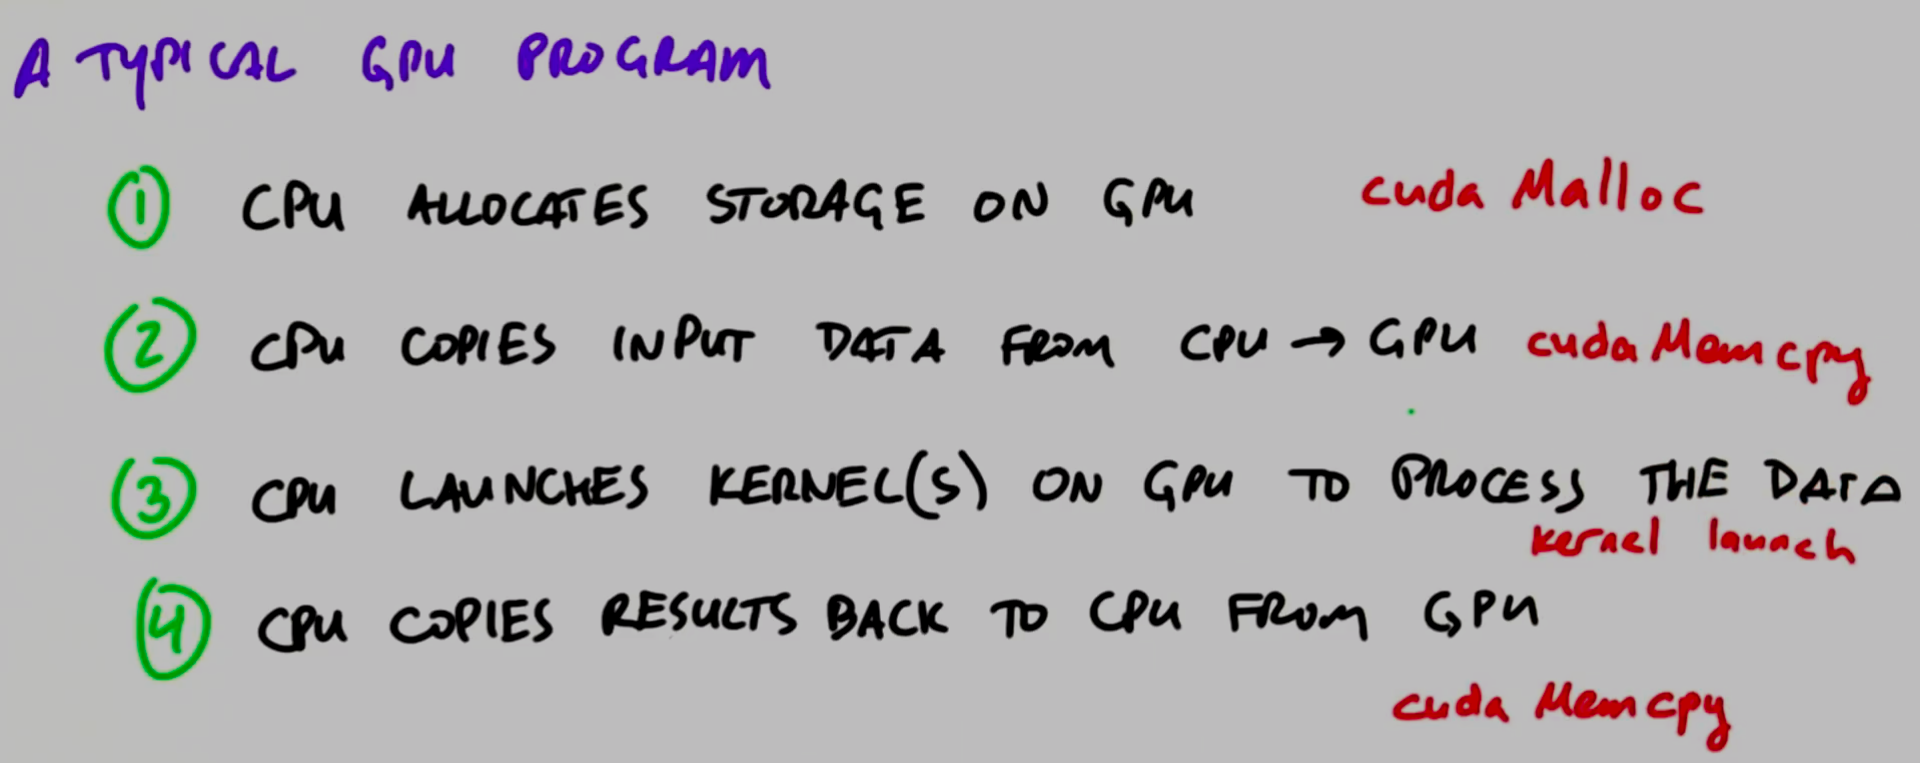 A TYPICAL GPU PROGRAM
1 CPU ALLOCATES STORAGE ON GPU cuda Malloc
2 CPU COPIES INPUT DATA FROM CPU → GPU cudaMemcpy
3 CPU LAUNCHES KERNEL(S) ON GPU TO PROCESS THE DATA
kernel launch
4 CPU COPIES RESULTS BACK TO CPU FROM GPU
cuda Memcpy